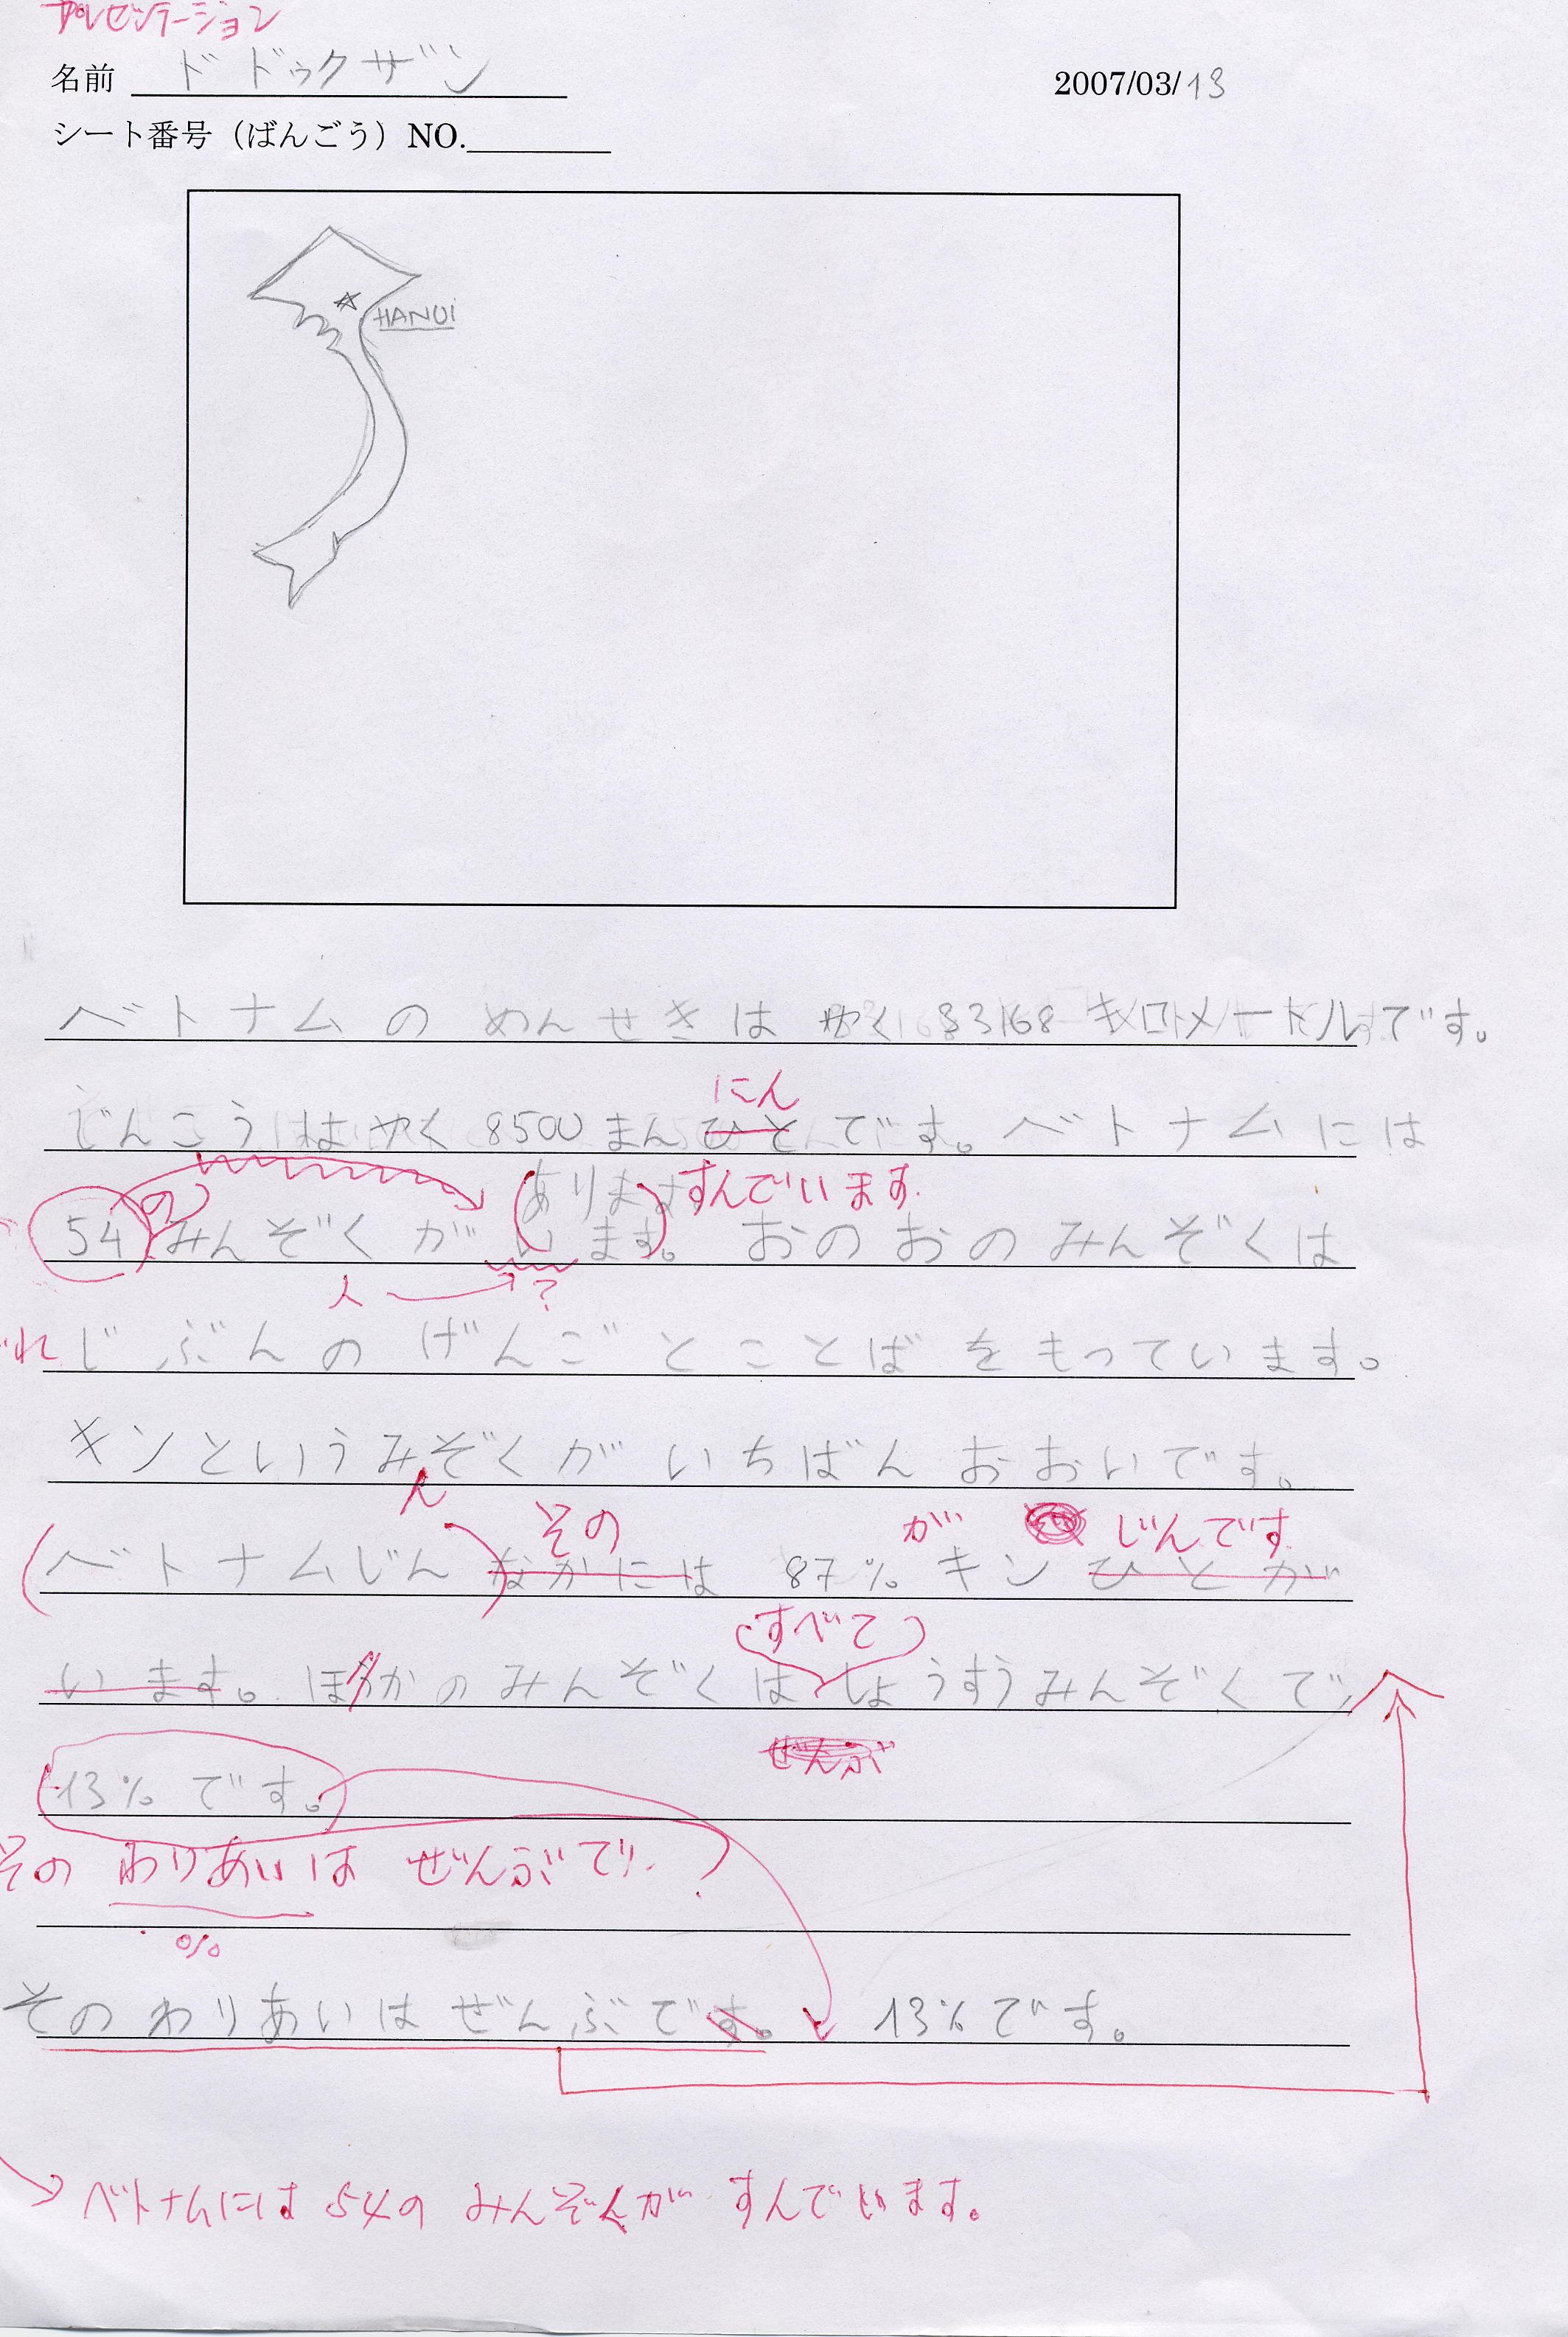 プレゼンテーション
名前 ド ドゥク ザン 2007/03/13
シート番号（ばんごう）NO.
HANOI
ベトナムのめんせきは やく 33168 キロメートルです。
にん
じんこうは やく 8500 まんひとです。ベトナムには
の あります すんでいます.
54 みんぞくが います。 おのおのみんぞくは
人 ?
れ じぶんの げんごとことばをもっています。
キンというみぞくが いちばん おおいです。
ん
その が じんです
ベトナムじん なかには 87% キン ひとが
すべて
います。 ほかのみんぞくは しょうすうみんぞくで、
ぜんぶ
13% です。
その わりあいは ぜんぶで
%
その わりあいは ぜんぶです。 13%です。
ベトナムには 54の みんぞくが すんでいます。